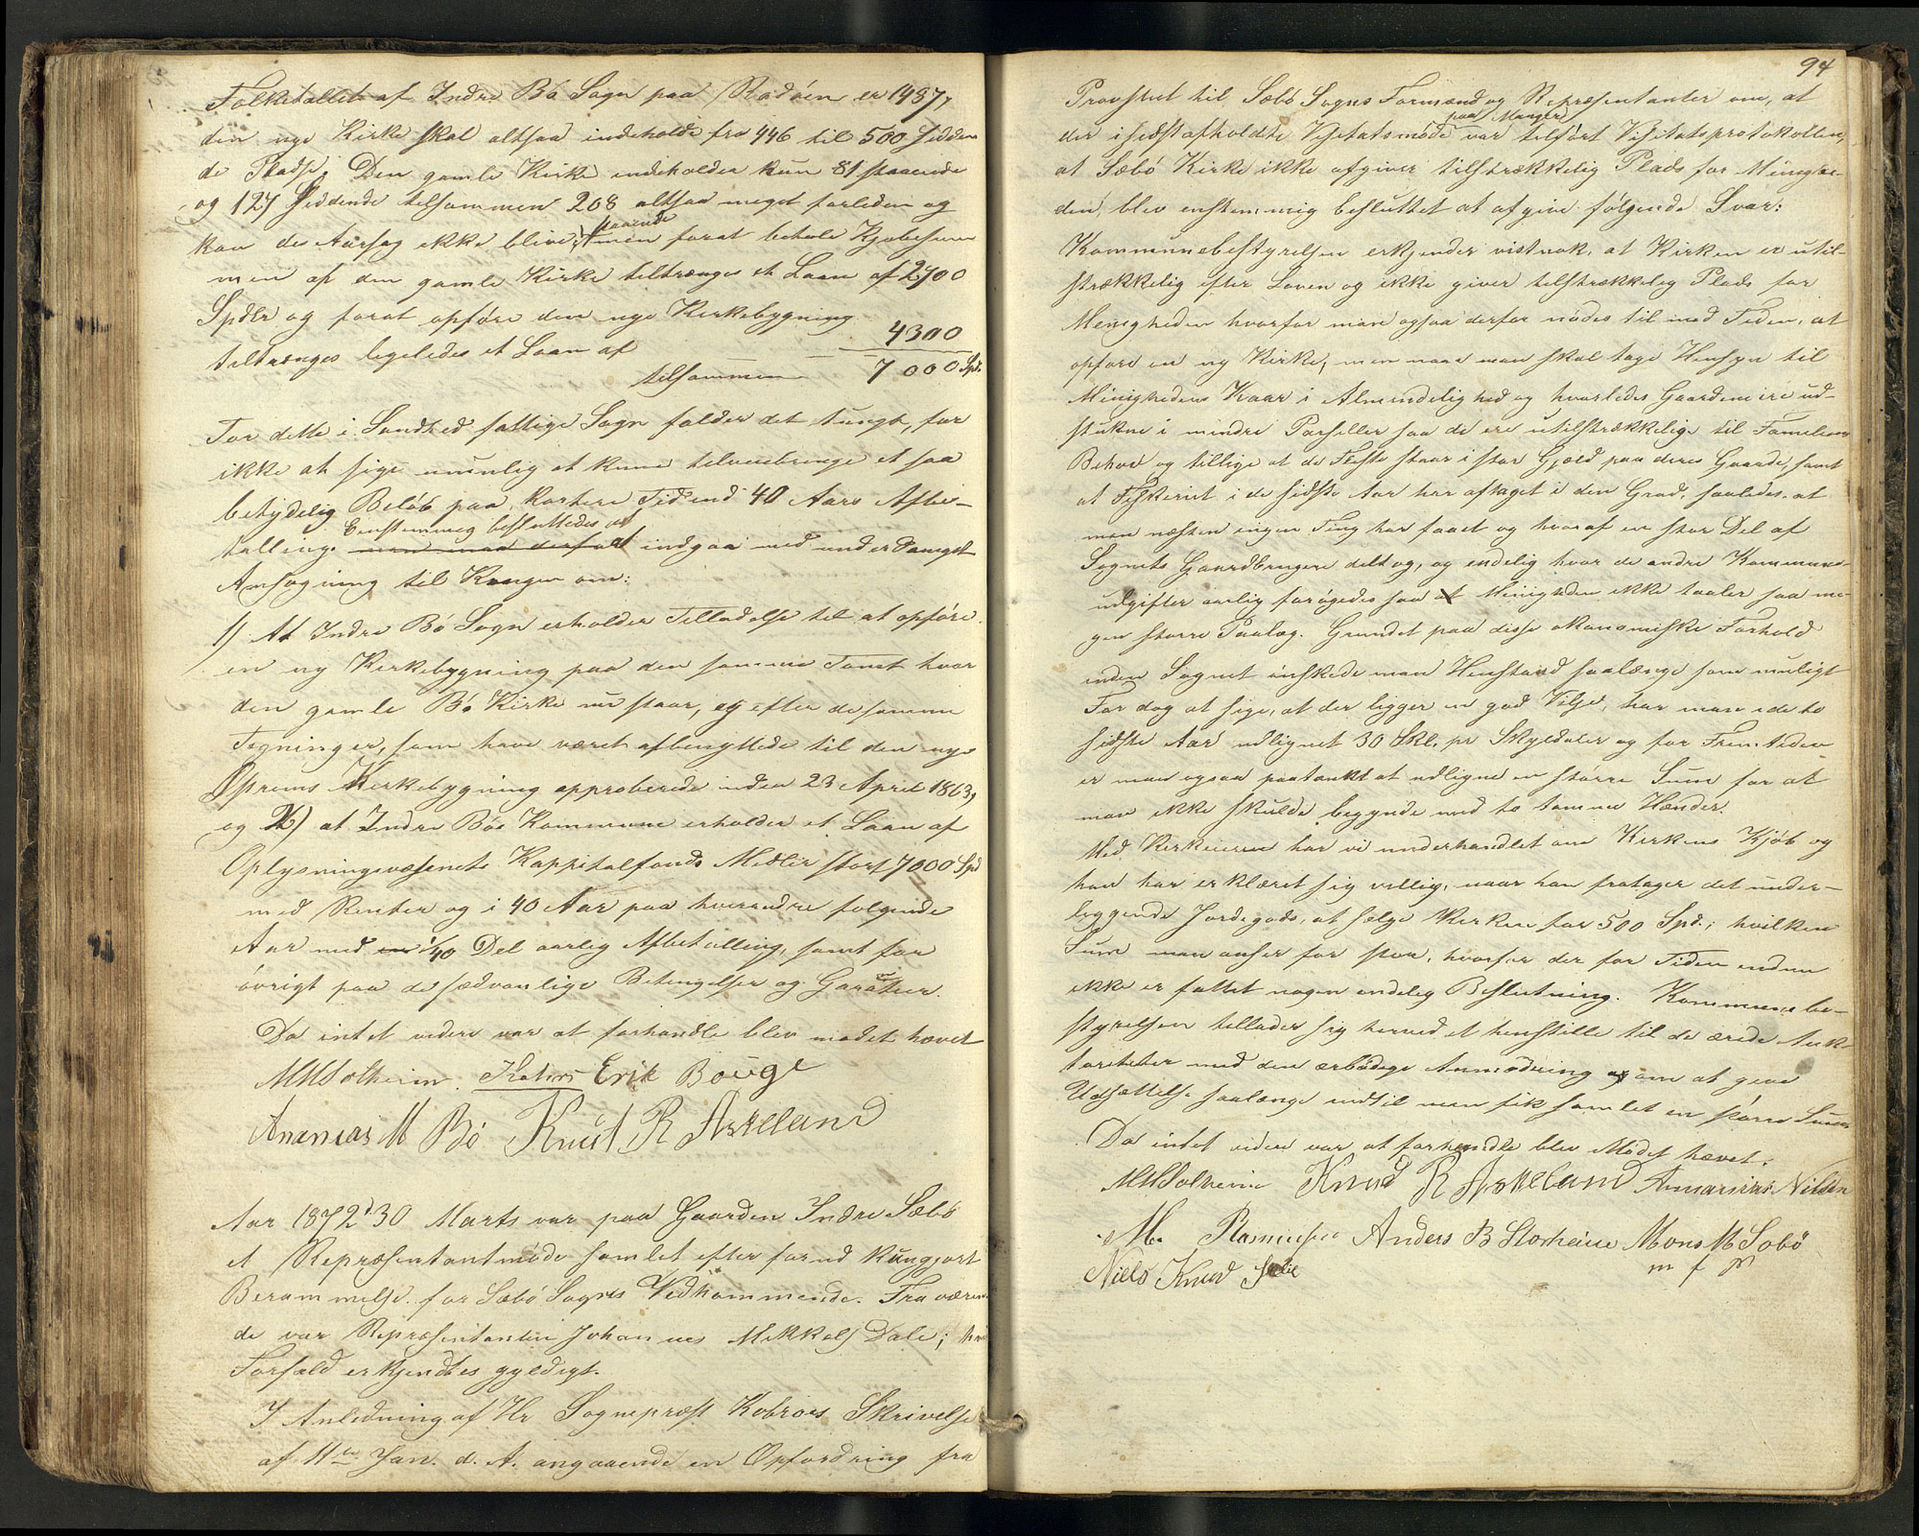 Folketallet af Indre Bö Sogn paa Radöen er 1487,
den nye Kirke skal altsaa indeholde fra 446 til 500 sidden
de Pladse. Den gamle Kirke indeholder kun 81 staaende
og 127 siddende tilsammen 208 altsaa meget forliden og
kan des Aarsag ikke blive staaende, men forat betale Kjöbesum
men af den gamle Kirke tiltrænges et Laan af 2700
Spdlr og forat opföre den nye Kirkebygning
tiltrænges ligeledes et Laan af 4300
tilsammen 7000 Spd.
For dette i Sandhed fattige Sogn falder det tungt, for
ikke at sige umulig at kunne tilveiebringe et saa
betydelig Belöb paa kortere Tid end 40 Aars Afbe-
taling. Eenstemmig besluttedes at indgaa med underdanigst
Ansøgning til Kongen om:
1) At Indre Bö Sogn erholder Tilladelse til at opföre
en ny Kirkebygning paa den samme Tomt hvor
den gamle Bö Kirke nu staar, og efter de samme
Tegninger, som have været afbenyttede til den nye
Kirkebygning approberede under 23 April 1863,
og 2) at Indre Böe Kommune erholder et Laan af
Oplysningsvæsenets Kappitalfonds Midler stort 7000 Spd
med Renter og i 40 Aar paa hverandre følgende
Aar med en 1/40 Del aarlig Afbetalling, samt for
övrigt paa de sædvanlige Betingelser og Garantier.
Da intet videre var at forhandle blev mødet hævet
MMSolheim. Erik Bouge
Ananias M Bö Knut R Askeland
Aar 1872 d 30 Marts var paa Gaarden Indre Sæbö
et Repræsentantmøde samlet efter forud kungjort
Berammelse for Sæbö Sogns Vedkommende. Fraværen
de var Repræsentanten Johannes Mikkels Dale;
Forfald erkjendtes gyldigt.
I Anledning af Hr Sognepræst Kobroes Skrivelse
af 11te Jan. d. A. angaaende en Opfordring fra
94
Provstiet til Sæbö Sogns Formænd og Repræsentanter om, at
der i sidst afholdte Visitatsmøde paa Manger var tilfört Visitatsprotokollen,
at Sæbö Kirke ikke afgiver tilstrækkelig Plads for Menighe-
den, blev enstemmig besluttet at afgive følgende Svar:
Kommunebestyrelsen erkjender vistnok, at Kirken er util-
strækkelig efter Loven og ikke giver tilstrækkelig Plads for
Menigheden hvorfor man ogsaa derfor nødes til med Tiden, at
opføre en ny Kirke, men naar man skal tage Hensyn til
Menighedens Kaar i Almindelighed og hvorledes Gaardene ere ud-
stukne i mindre Parseller saa de ere utilstrækkelige til Familiens
Behov og tillige at de Fleste staar i stor Gjæld paa deres Gaarde, samt
at Fiskeriet i de sidste Aar har aftaget i den Grad, saaledes at
man næsten ingen Ting har faaet og hvoraf en stor Del af
Sognets Gaardbrugere deltog, og endelig hvor de andre Kommune-
udgifter aarlig forøgedes saa at Menigheden ikke taaler saa me-
gen større Paalæg. Grundet paa disse økonomiske Forhold
inden Sognet önskede man Henstand saalænge som muligt
For dog at sige, at der ligger en god Vilje, har man i de to
sidste Aar udlignet 30 Skl. pr Skyldaler og for Fremtiden
er man ogsaa paatænkt at udligne en större Sum for at
man ikke skulde begynde med to tomme Hænder.
Med Kirkeieren har vi underhandlet om Kirkens Kjöb og
han har erklæret sig villig, naar han fratager det under-
liggende Jordegods, at sælge Kirken for 500 Spd.; hvilken
Sum man anser for stor, hvorfor der for Tiden endnu
ikke er fattet nogen endelig Beslutning. Kommunebe-
styrelsen tillader sig herved at henstille til de ærede Auk-
toriteter med den ærbødige Anmodning om at give
Udsættelse saalænge indtil man fik samlet en större Sum
Da intet videre var at forhandle blev Mödet hævet.
MMSolheim Knud R Askeland Annanias Nilsen
M. Rasmussen Anders B Storheim Mons M Sobö
m f P
Niels Knud